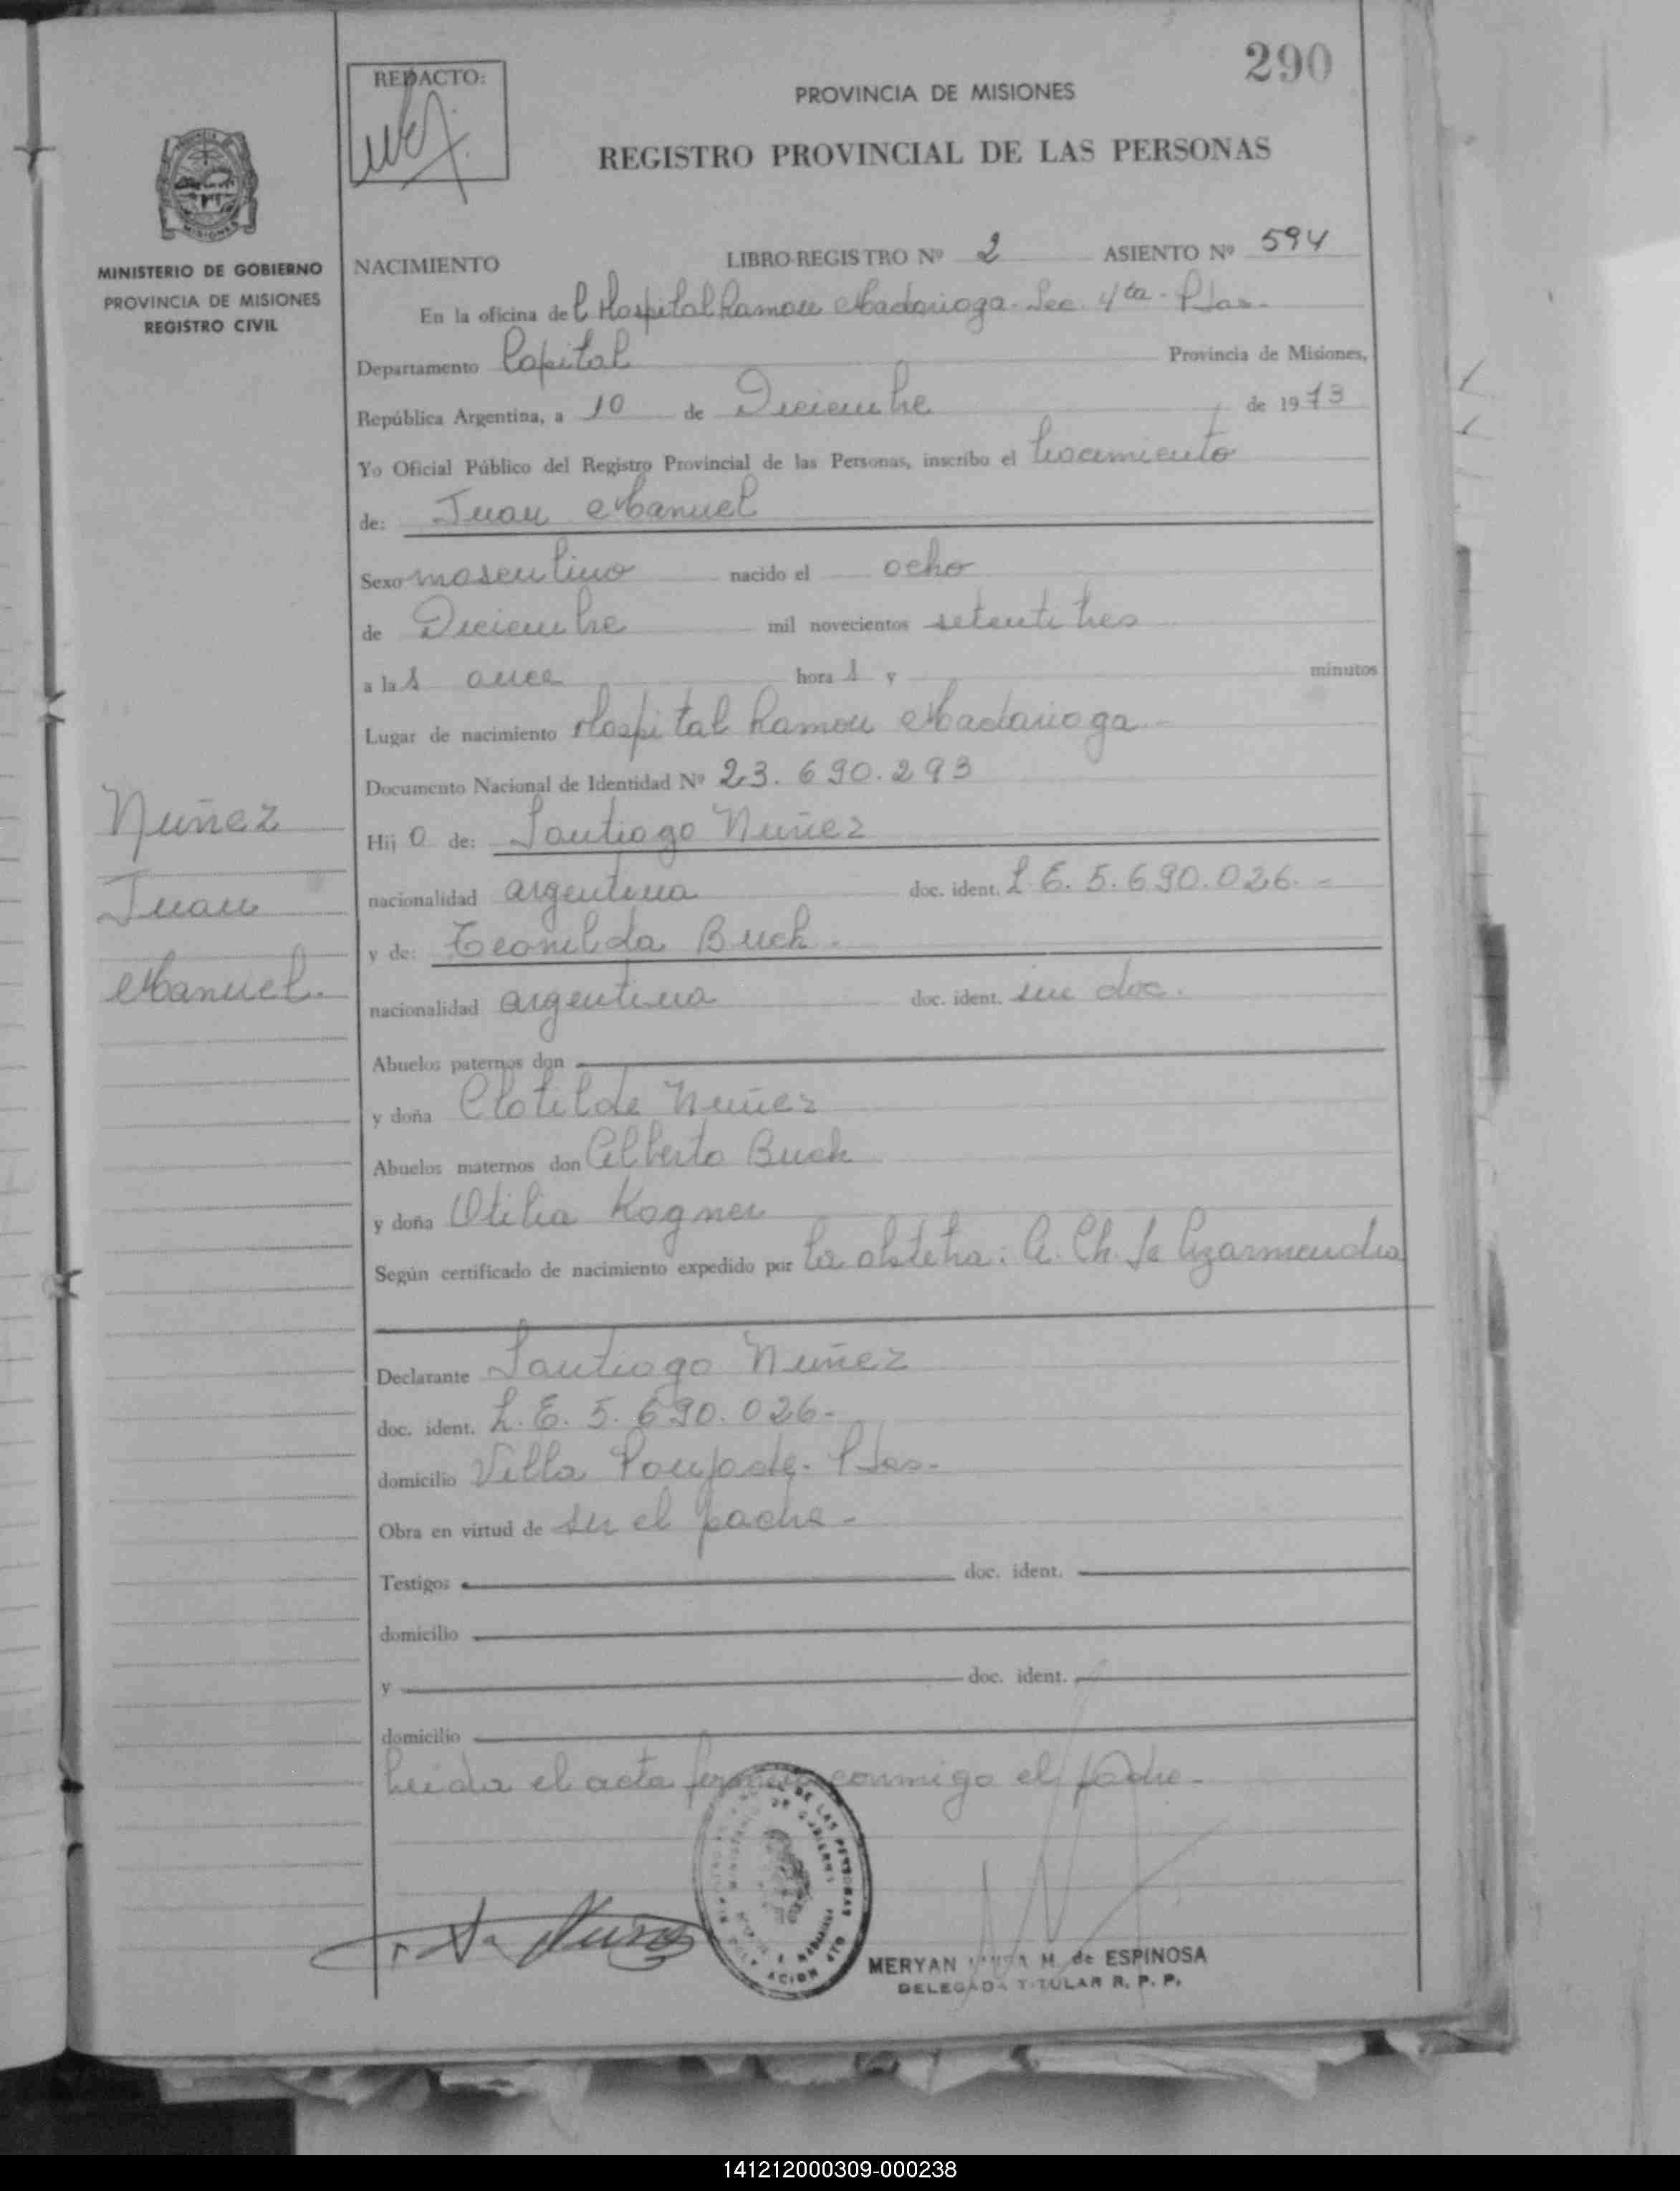 290
REDACTO:
PROVINCIA DE MISIONES
REGISTRO PROVINCIAL DE LAS PERSONAS
MINISTERIO DE GOBIERNO
PROVINCIA DE MISIONES
REGISTRO CIVIL
NACIMIENTO LIBRO-REGISTRO Nº 2 ASIENTO Nº 594
En la oficina del Hospital Ramon Madariaga. Sec. 4ta - Pdas.
Departamento Capital Provincia de Misiones,
República Argentina, a 10 de Diciembre de 1973
Yo Oficial Público del Registro Provincial de las Personas, inscribo el nacimiento
de: Juan Manuel
Sexo masculino nacido el ocho
de Diciembre mil novecientos setenti tres
a las once horas y minutos
Lugar de nacimiento Hospital Ramon Madariaga
Documento Nacional de Identidad Nº 23.690.293
Nuñez
Juan
Manuel.
Hijo de: Santiago Nuñez
nacionalidad argentina doc. ident. L.E. 5.690.026.-
y de: Teonilda Buch.
nacionalidad argentina doc. ident. sin doc.
Abuelos paternos don
y doña Clotilde Nuñez
Abuelos maternos don Alberto Buch
y doña Otilia Kogner
Según certificado de nacimiento expedido por la obstetra: A. Ch. de
Declarante Santiago Nuñez
doc. ident. L.E. 5.690.026.-
domicilio Villa Poujade. Pdas.
Obra en virtud de ser el padre.-
Testigos doc. ident.
domicilio
y doc. ident.
domicilio
Leida el acta firma conmigo el padre.-
MERYAN M. de ESPINOSA
DELEGADA TITULAR R. P. P.
141212000309-000238